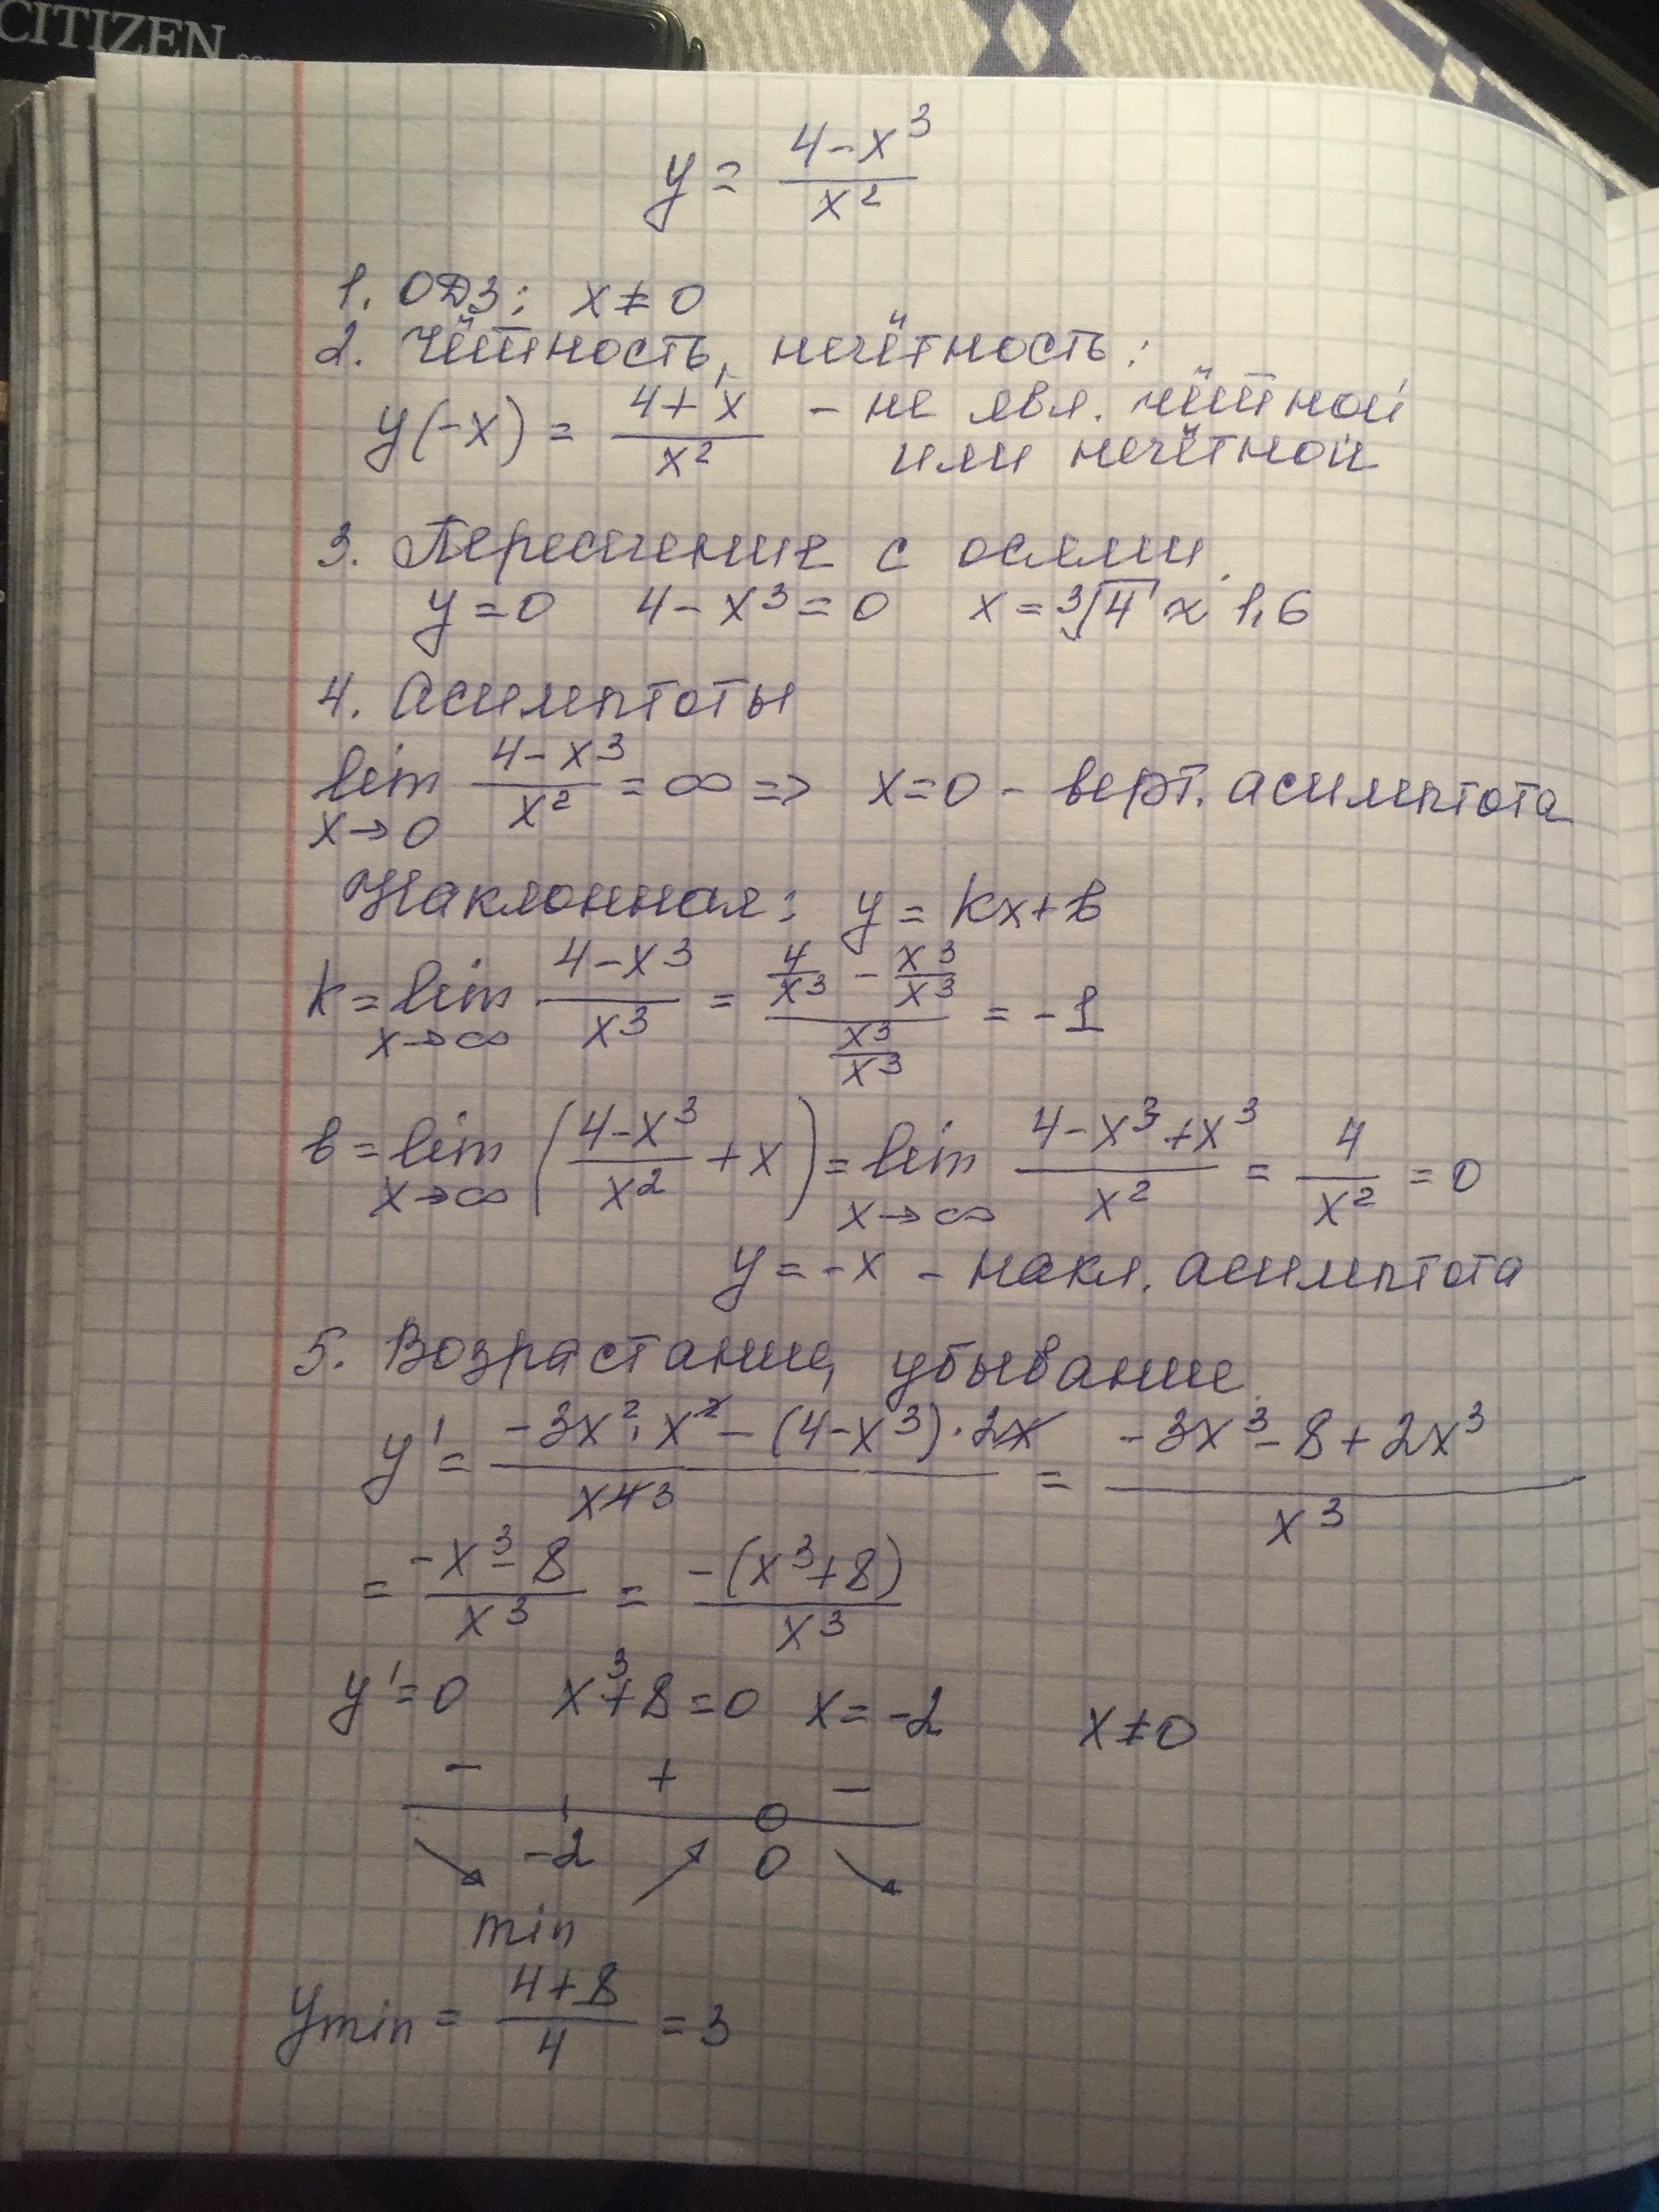 CITIZEN
y = (4-x³)/x²
1. ОДЗ: x ≠ 0
2. Чётность, нечётность:
y(-x) = (4+x)/x² - не явл. чётной
или нечётной
3. Пересечение с осями.
y=0 4-x³=0 x=³√4 ≈ 1,6
4. Асимптоты
lim x→0 (4-x³)/x² = ∞ => x=0 - верт. асимптота
Наклонная: y = kx+b
k = lim x→∞ (4-x³)/x³ = (4/x³ - x³/x³)/(x³/x³) = -1
b = lim x→∞ ((4-x³)/x² + x) = lim x→∞ (4-x³+x³)/x² = 4/x² = 0
y = -x - накл. асимптота
5. Возрастание, убывание.
y' = (-3x²·x² - (4-x³)·2x)/x⁴ ³ = (-3x³-8+2x³)/x³
= (-x³-8)/x³ = -(x³+8)/x³
y'=0 x³+8=0 x=-2 x≠0
- + -
-2 0
min
ymin = (4+8)/4 = 3